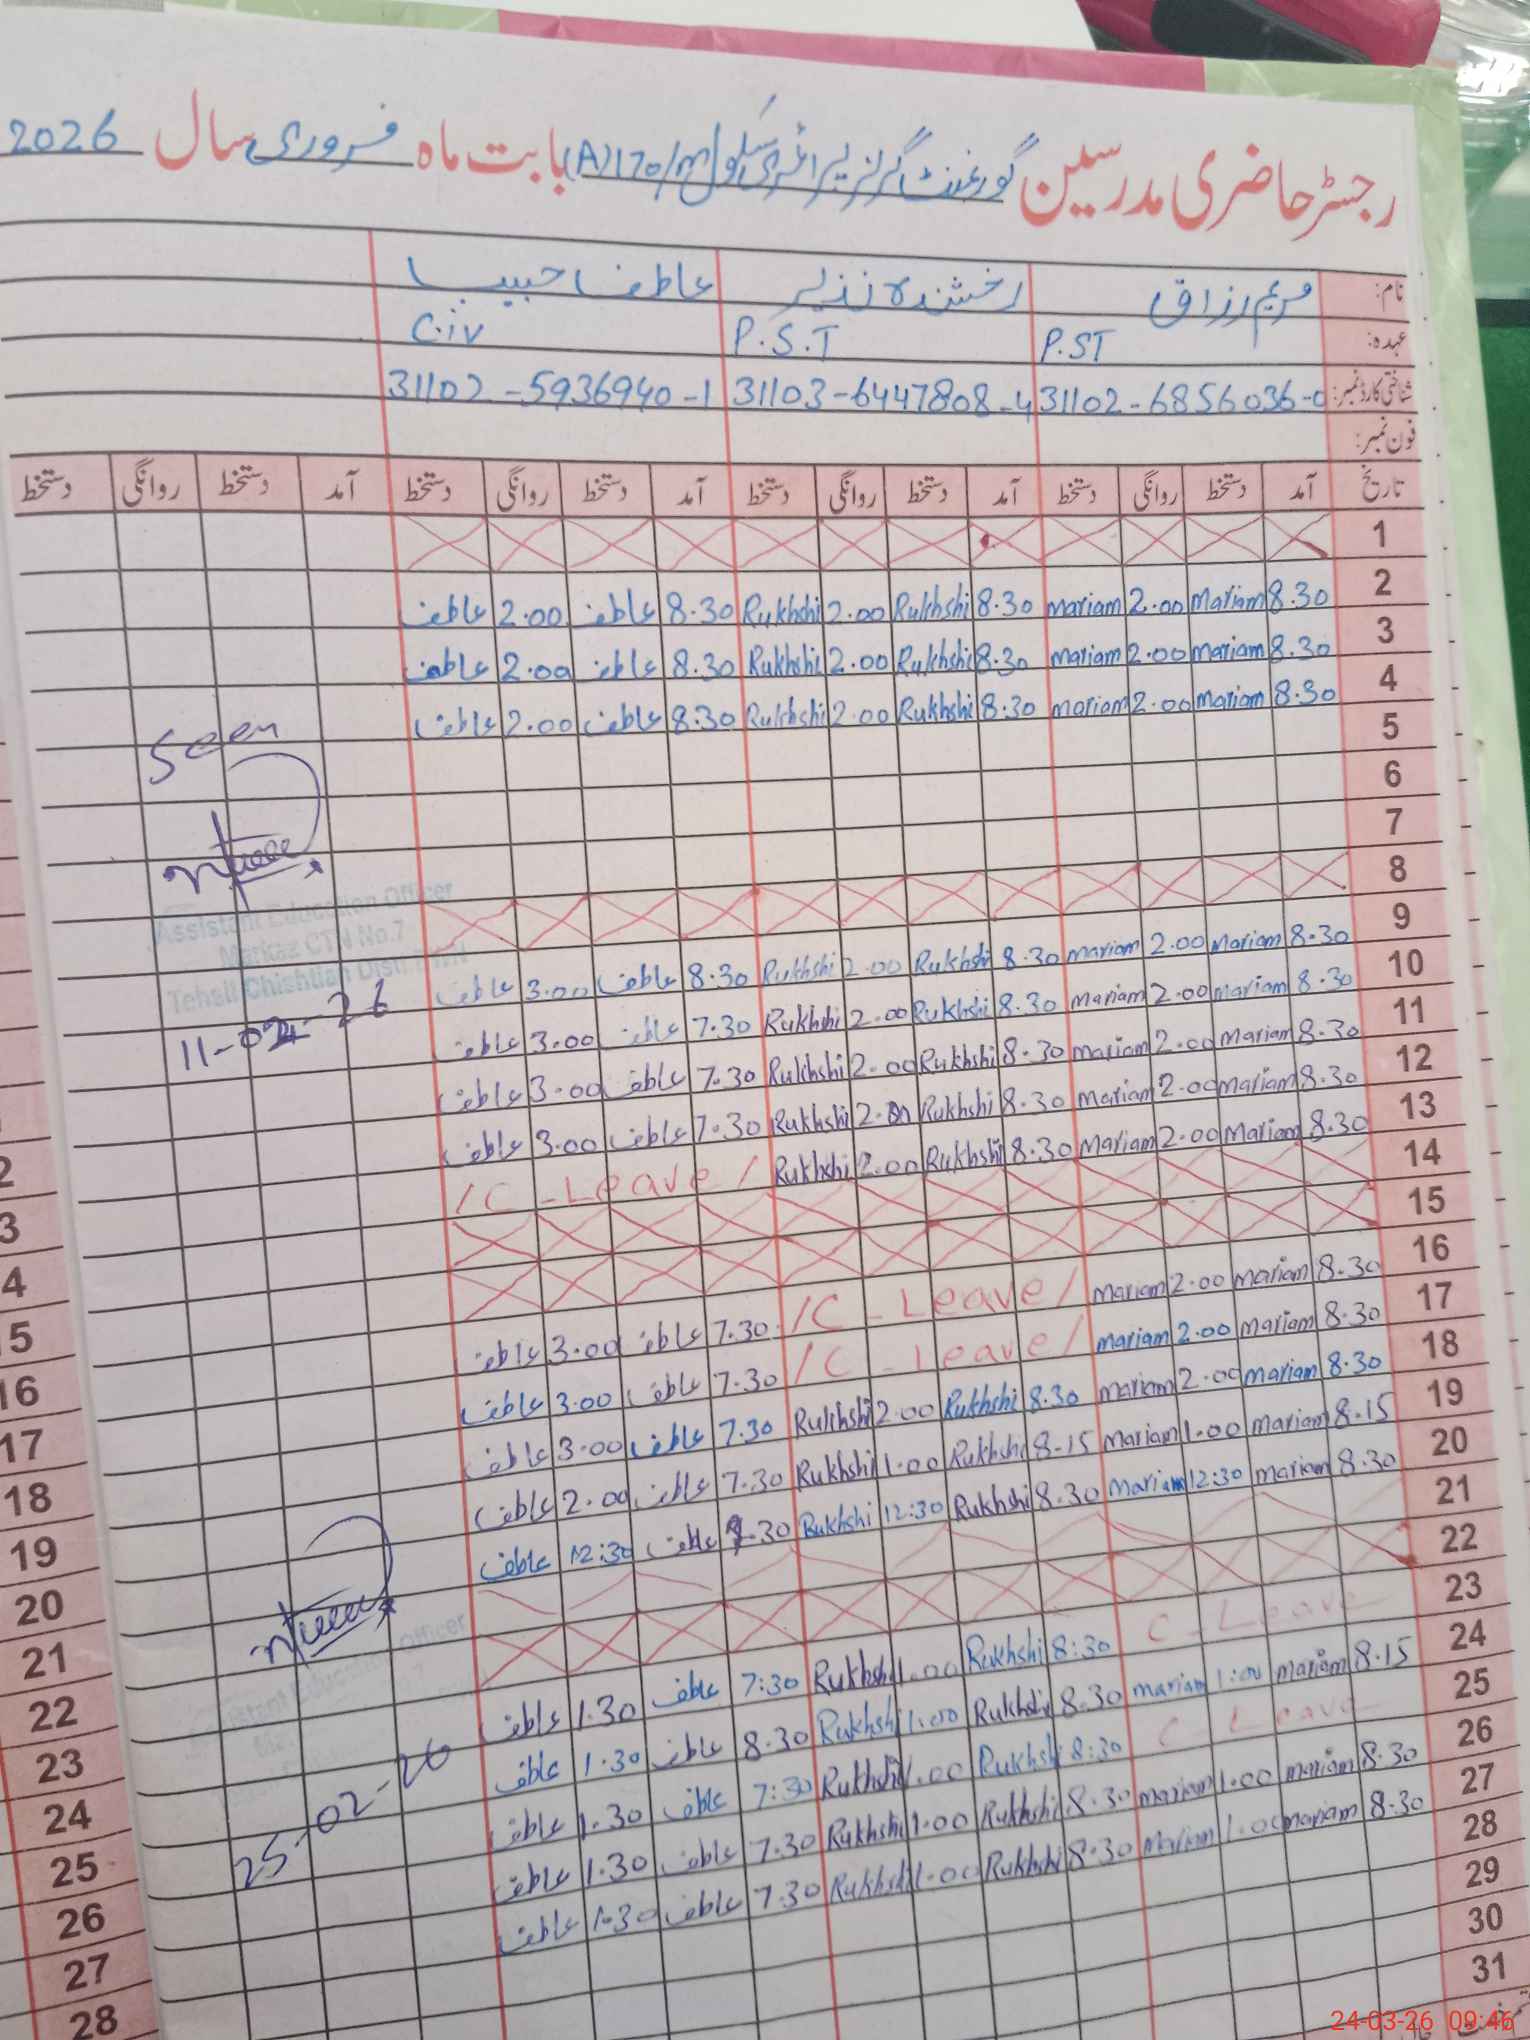 رجسٹر حاضری مدرسین گورنمنٹ گرلز پرائمری سکول 170/m(A) بابت ماہ فروری سال 2026
نام: مریم رزاق رخشندہ نذیر عاطف حبیب
عہدہ: P.ST P.S.T C.iv
شناختی کارڈ نمبر: 31102-6856036-0 31103-6447808-4 31102-5936940-1
فون نمبر:
تاریخ آمد دستخط روانگی دستخط آمد دستخط روانگی دستخط آمد دستخط روانگی دستخط آمد دستخط روانگی دستخط
1
2 8.30 Mariam 2.00 Mariam 8.30 Rukhshi 2.00 Rukhshi 8.30 عاطف 2.00 عاطف
3 8.30 Mariam 2.00 Mariam 8.30 Rukhshi 2.00 Rukhshi 8.30 عاطف 2.00 عاطف
4 8.30 Mariam 2.00 Mariam 8.30 Rukhshi 2.00 Rukhshi 8.30 عاطف 2.00 عاطف
5
Seen
6
7
8
Assistant Education Officer
Markaz CTN No.7
Tehsil Chishtian Distt.
11-02-26
9 8.30 Mariam 2.00 Mariam 8.30 Rukhshi 2.00 Rukhshi 8.30 عاطف 3.00 عاطف
10 8.30 Mariam 2.00 Mariam 8.30 Rukhshi 2.00 Rukhshi 7.30 عاطف 3.00 عاطف
11 8.30 Mariam 2.00 Mariam 8.30 Rukhshi 2.00 Rukhshi 7.30 عاطف 3.00 عاطف
12 8.30 Mariam 2.00 Mariam 8.30 Rukhshi 2.00 Rukhshi 7.30 عاطف 3.00 عاطف
13 8.30 Mariam 2.00 Mariam 8.30 Rukhshi 2.00 Rukhshi /C-Leave/
14
15
16 8.30 Mariam 2.00 Mariam /C-Leave/ 7.30 عاطف 3.00 عاطف
17 8.30 Mariam 2.00 Mariam /C-Leave/ 7.30 عاطف 3.00 عاطف
18 8.30 Mariam 2.00 Mariam 8.30 Rukhshi 2.00 Rukhshi 7.30 عاطف 3.00 عاطف
19 8.15 Mariam 1.00 Mariam 8.15 Rukhshi 1.00 Rukhshi 7.30 عاطف 2.00 عاطف
20 8.30 Mariam 12:30 Mariam 8.30 Rukhshi 12:30 Rukhshi 7.30 عاطف 12:30 عاطف
21
22
23 C-Leave 8:30 Rukhshi 1.00 Rukhshi 7:30 عاطف 1.30 عاطف
24 8.15 Mariam 1:00 Mariam 8.30 Rukhshi 1.00 Rukhshi 8.30 عاطف 1.30 عاطف
25 C-Leave 8:30 Rukhshi 1.00 Rukhshi 7:30 عاطف 1.30 عاطف
26 8.30 Mariam 1.00 Mariam 8.30 Rukhshi 1.00 Rukhshi 7.30 عاطف 1.30 عاطف
27 8.30 Mariam 1.00 Mariam 8.30 Rukhshi 1.00 Rukhshi 7.30 عاطف 1.30 عاطف
25-02-26
28
29
30
31
2
3
4
15
16
17
18
19
20
21
22
23
24
25
26
27
28
24-03-26 09:46